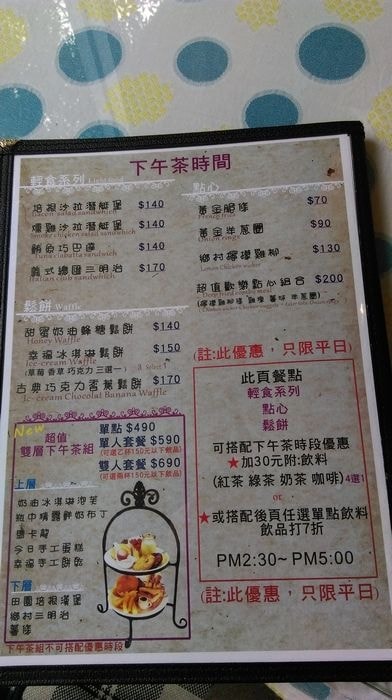 下午茶時間
輕食系列 Light food
培根沙拉潛艇堡 $140
Bacon salad sandwich
燻雞沙拉潛艇堡 $140
Smoke chicken salad sandwich
鮪魚巧巴達 $140
Tuna ciabatta sandwich
義式總匯三明治 $170
Italian club sandwich
鬆餅 Waffle
甜蜜奶油蜂蜜鬆餅 $140
Honey Waffle
幸福冰淇淋鬆餅 $150
Ice-cream Waffle
(草莓 香草 巧克力 三選一) 3 Select 1
古典巧克力香蕉鬆餅 $170
Ice-cream Chocolat Banana Waffle
點心
黃金脆條 $70
黃金洋蔥圈 $90
Onion rings
鄉村檸檬雞柳 $130
Lemon Chicken
超值歡樂點心組合 $200
(註:此優惠，只限平日)
此頁餐點
輕食系列
點心
鬆餅
可搭配下午茶時段優惠
★加30元附:飲料
(紅茶 綠茶 奶茶 咖啡)4選1
or
★或搭配後頁任選單點飲料
飲品打7折
PM2:30~ PM5:00
(註:此優惠，只限平日)
New
超值
雙層下午茶組
單點 $490
單人套餐 $590
(可選乙杯150元以下飲品)
雙人套餐 $690
(可選兩杯150元以下飲品)
上層
奶油冰淇淋泡芙
瓶中精靈鮮奶布丁
馬卡龍
今日手工蛋糕
幸福手工餅乾
下層
田園培根漢堡
鄉村三明治
薯條
下午茶組不可搭配優惠時段